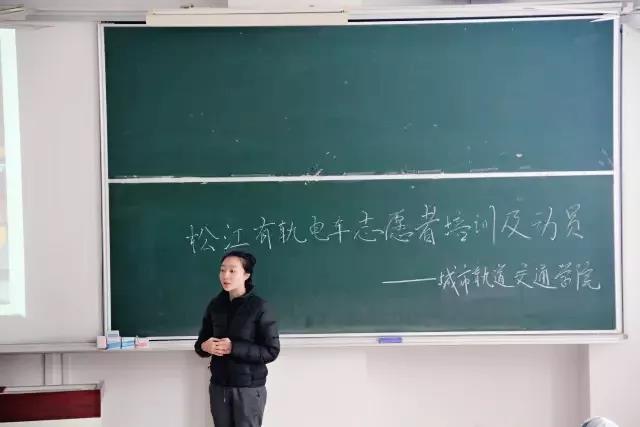 松江有轨电车志愿者培训及动员
——城市轨道交通学院